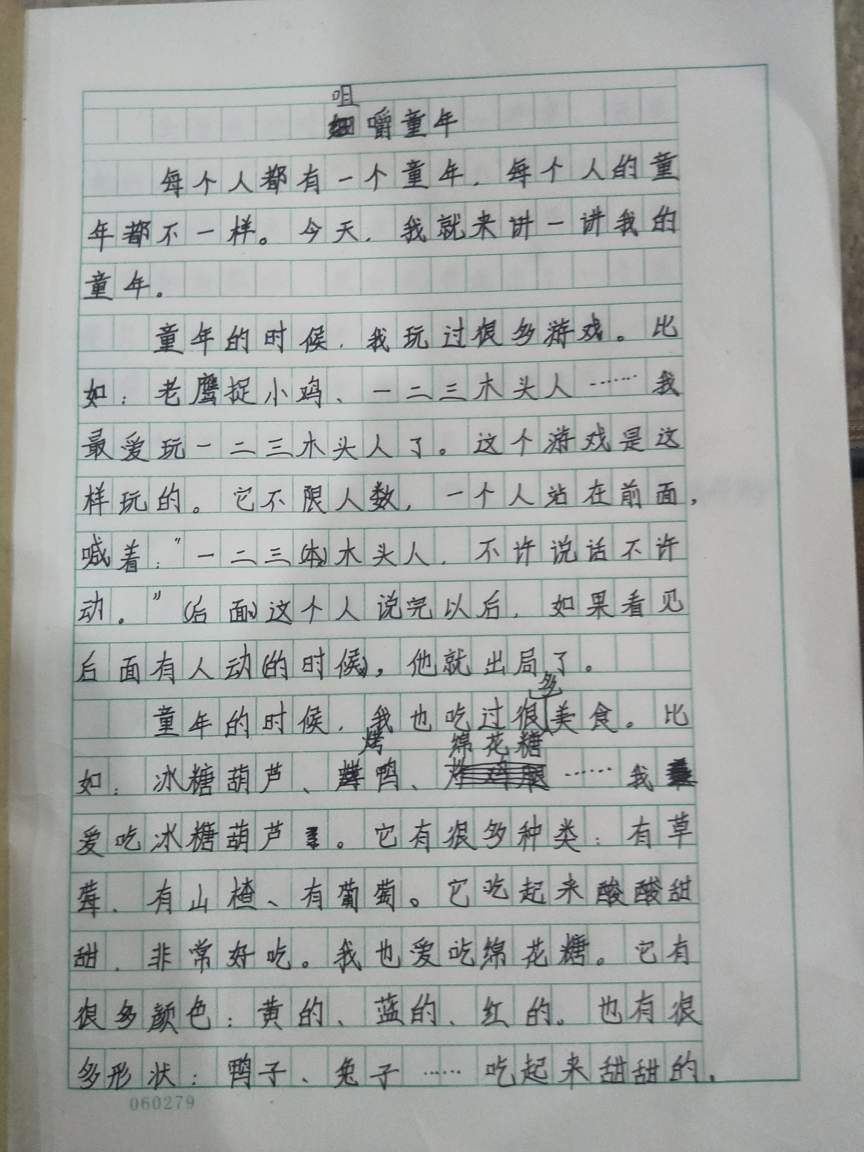 咀嚼童年
每个人都有一个童年，每个人的童
年都不一样。今天，我就来讲一讲我的
童年。
童年的时候，我玩过很多游戏。比
如：老鹰捉小鸡、一二三木头人……我
最爱玩一二三木头人了。这个游戏是这
样玩的。它不限人数，一个人站在前面，
喊着：“一二三(本)木头人，不许说话不许
动。”(后面)这个人说完以后，如果看见
后面有人动(的时候)，他就出局了。
童年的时候，我也吃过很多美食。比
如：冰糖葫芦、烤鸭、绵花糖……我
爱吃冰糖葫芦。它有很多种类：有草
莓、有山楂、有葡萄。它吃起来酸酸甜
甜，非常好吃。我也爱吃绵花糖。它有
很多颜色：黄的、蓝的、红的。也有很
多形状：鸭子、兔子……吃起来甜甜的，
060279